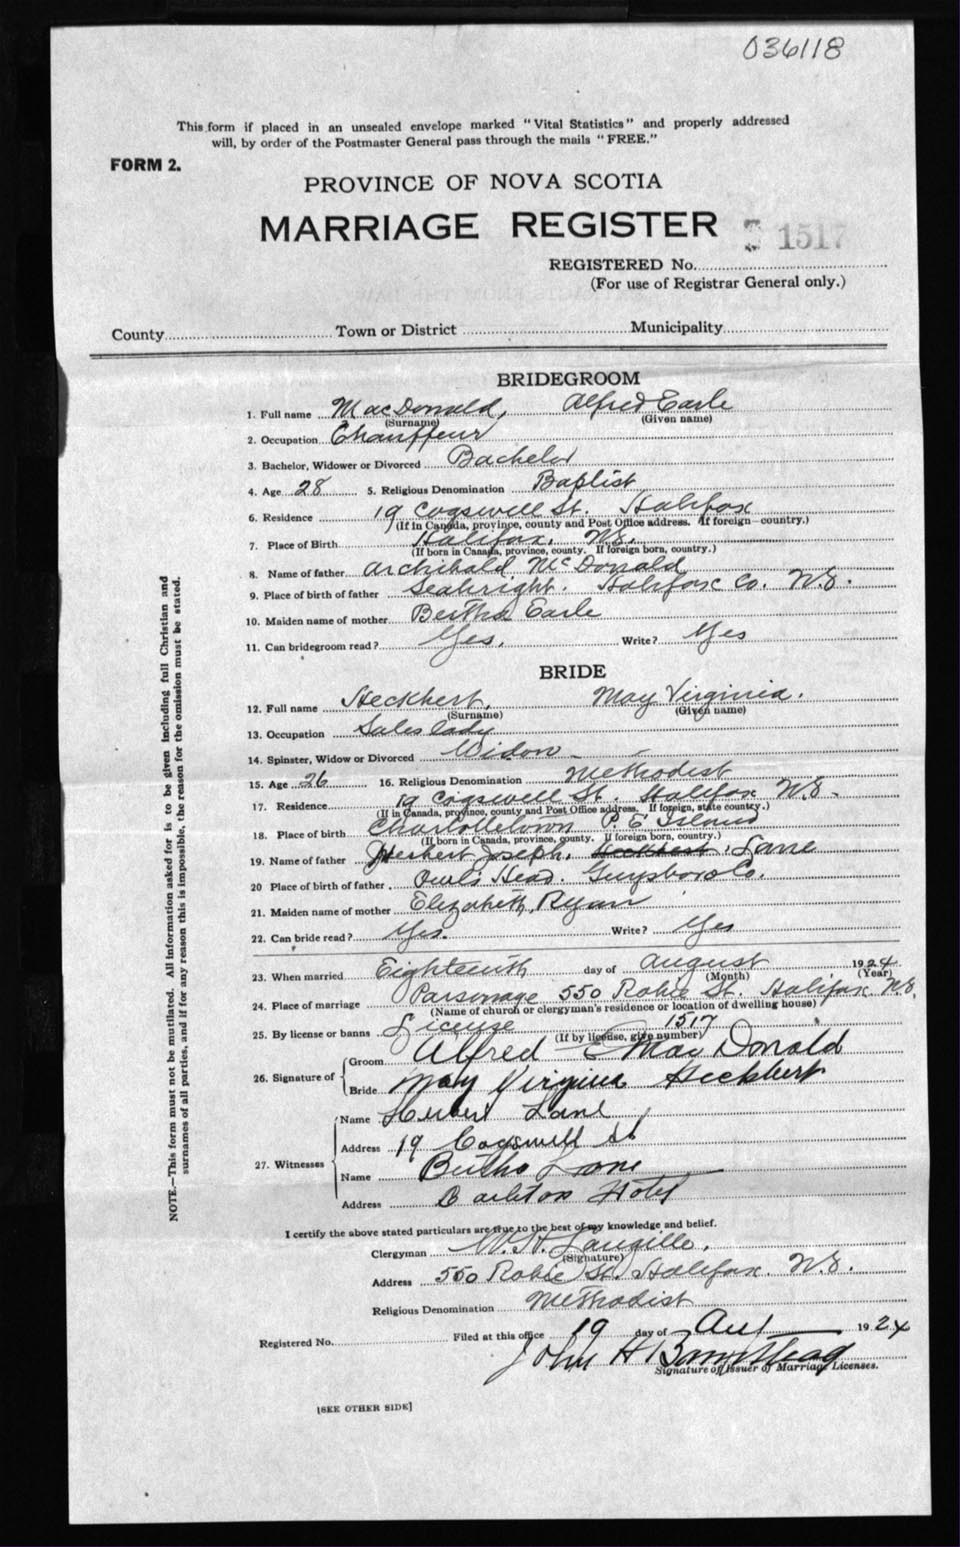 036118
This form if placed in an unsealed envelope marked "Vital Statistics" and properly addressed
will, by order of the Postmaster General pass through the mails "FREE."
FORM 2.
PROVINCE OF NOVA SCOTIA
MARRIAGE REGISTER
1517
REGISTERED No.
(For use of Registrar General only.)
County Town or District Municipality
BRIDEGROOM
1. Full name MacDonald, Alfred Earle
(Surname) (Given name)
2. Occupation Chauffeur
3. Bachelor, Widower or Divorced Bachelor
4. Age 28 5. Religious Denomination Baptist
6. Residence 19 Cogswell St. Halifax
(If in Canada, province, county and Post Office address. If foreign—country.)
7. Place of Birth Halifax, N.S.
(If born in Canada, province, county. If foreign born, country.)
8. Name of father Archibald McDonald
9. Place of birth of father Seabright. Halifax Co. N.S.
10. Maiden name of mother Bertha Earle
11. Can bridegroom read? Yes, Write? Yes
BRIDE
12. Full name Heckbert, May Virginia.
(Surname) (Given name)
13. Occupation Saleslady
14. Spinster, Widow or Divorced Widow
15. Age 26 16. Religious Denomination Methodist
17. Residence 19 Cogswell St. Halifax N.S.
(If in Canada, province, county and Post Office address. If foreign, state country.)
18. Place of birth Charlottetown P E Island
(If born in Canada, province, county. If foreign born, country.)
19. Name of father Herbert Joseph, Heckbert, Lane
20 Place of birth of father Owl's Head. Guysboro Co.
21. Maiden name of mother Elizabeth Ryan
22. Can bride read? Yes. Write? Yes
23. When married Eighteenth day of August 1924.
(Month) (Year)
24. Place of marriage Parsonage 550 Robie St. Halifax N.S.
(Name of church or clergyman's residence or location of dwelling house)
25. By license or banns License 1517
(If by license, give number)
26. Signature of Groom Alfred E MacDonald
Bride May Virginia Heckbert
27. Witnesses
Name Herbert Lane
Address 19 Cogswell St
Name Bertha Lane
Address Carleton Hotel
I certify the above stated particulars are true to the best of my knowledge and belief.
Clergyman W. H. Langille.
(Signature)
Address 550 Robie St. Halifax. N.S.
Religious Denomination Methodist
Registered No. Filed at this office 19 day of Aut 1924
John H
Signature of Issuer of Marriage Licenses.
[SEE OTHER SIDE]
NOTE.—This form must not be mutilated. All information asked for is to be given including full Christian and
surnames of all parties, and if for any reason this is impossible, the reason for the omission must be stated.